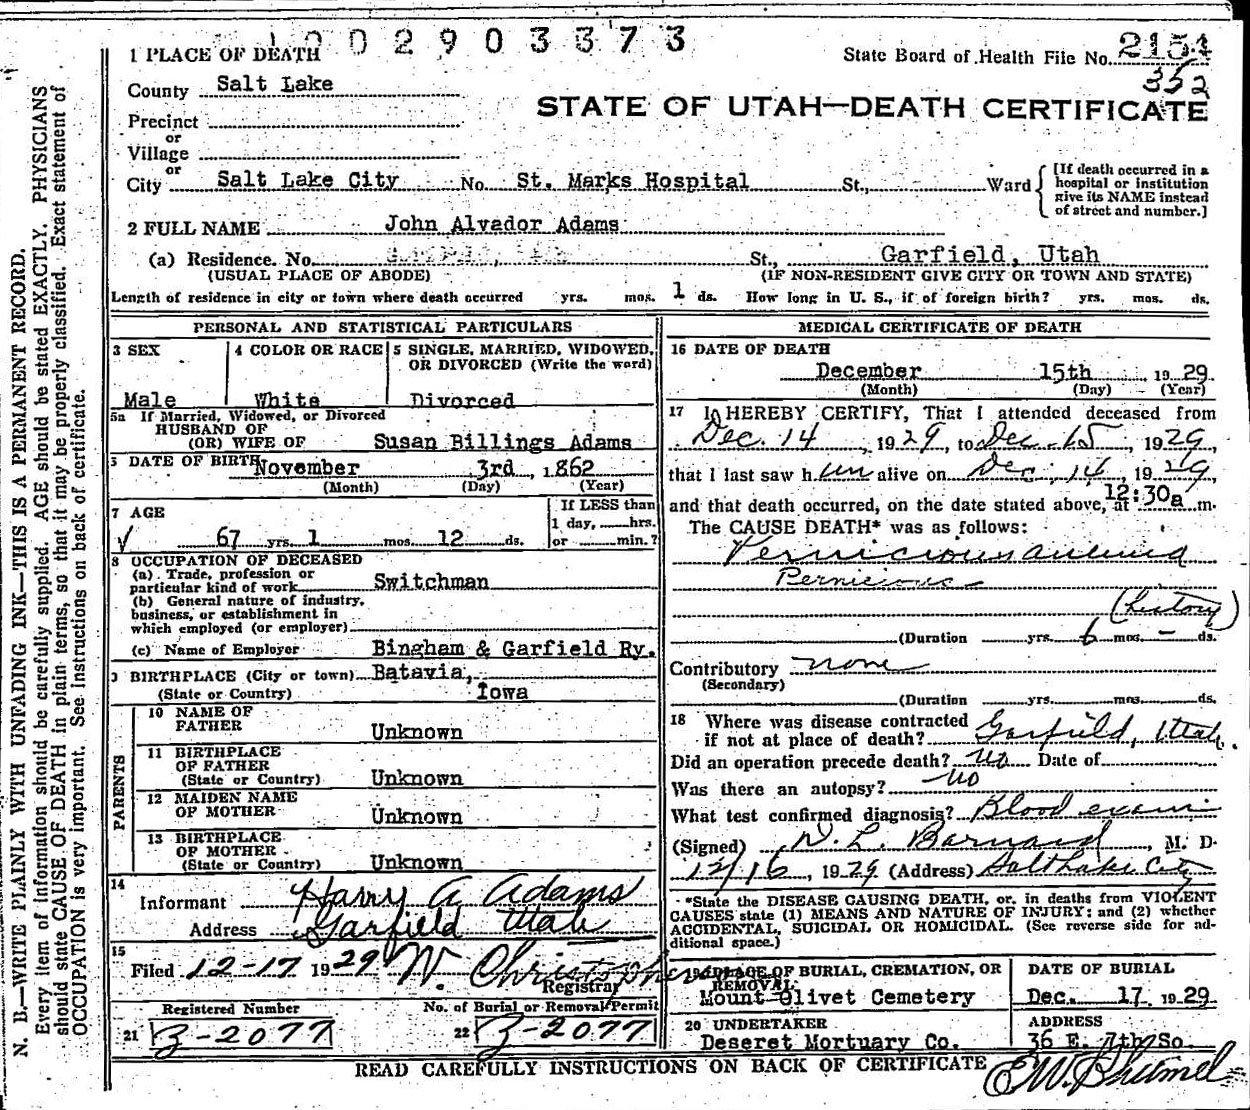 1 0 0 2 9 0 3 3 7 3
1 PLACE OF DEATH
State Board of Health File No. 2154
352
County Salt Lake
STATE OF UTAH—DEATH CERTIFICATE
Precinct
or
Village
or
City Salt Lake City No. St. Marks Hospital St., Ward
[If death occurred in a hospital or institution give its NAME instead of street and number.]
2 FULL NAME John Alvador Adams
(a) Residence. No. St., Garfield, Utah
(USUAL PLACE OF ABODE) (IF NON-RESIDENT GIVE CITY OR TOWN AND STATE)
Length of residence in city or town where death occurred yrs. mos. 1 ds. How long in U. S., if of foreign birth? yrs. mos. ds.
PERSONAL AND STATISTICAL PARTICULARS
3 SEX
Male
4 COLOR OR RACE
White
5 SINGLE, MARRIED, WIDOWED,
OR DIVORCED (Write the word)
Divorced
5a If Married, Widowed, or Divorced
HUSBAND OF
(OR) WIFE OF Susan Billings Adams
6 DATE OF BIRTH November 3rd, 1862
(Month) (Day) (Year)
7 AGE
√ 67 yrs. 1 mos. 12 ds.
If LESS than
1 day, hrs.
or min.?
8 OCCUPATION OF DECEASED
(a) Trade, profession or
particular kind of work Switchman
(b) General nature of industry,
business, or establishment in
which employed (or employer)
(c) Name of Employer Bingham & Garfield Ry.
9 BIRTHPLACE (City or town) Batavia,
(State or Country) Iowa
PARENTS
10 NAME OF
FATHER Unknown
11 BIRTHPLACE
OF FATHER
(State or Country) Unknown
12 MAIDEN NAME
OF MOTHER Unknown
13 BIRTHPLACE
OF MOTHER
(State or Country) Unknown
14
Informant Harry A Adams
Address Garfield Utah
15
Filed 12-17 1929 W. Christopherson
Registrar
Registered Number
21 Z-2077
No. of Burial or Removal Permit
22 Z-2077
MEDICAL CERTIFICATE OF DEATH
16 DATE OF DEATH
December 15th 1929
(Month) (Day) (Year)
17 I HEREBY CERTIFY, That I attended deceased from
Dec. 14, 1929, to Dec. 15, 1929,
that I last saw him alive on Dec. 14, 1929,
and that death occurred, on the date stated above, at 12:30a m.
The CAUSE DEATH* was as follows:
Pernicious anemia
Pernicious
(history)
(Duration yrs. 6 mos. - ds.
Contributory none
(Secondary)
(Duration yrs. mos. ds.
18 Where was disease contracted
if not at place of death? Garfield, Utah.
Did an operation precede death? No Date of
Was there an autopsy? No
What test confirmed diagnosis? Blood exam
(Signed) N. L. Barnard, M. D.
12/16, 1929 (Address) Salt Lake City
*State the DISEASE CAUSING DEATH, or, in deaths from VIOLENT
CAUSES state (1) MEANS AND NATURE OF INJURY; and (2) whether
ACCIDENTAL, SUICIDAL OR HOMICIDAL. (See reverse side for ad-
ditional space.)
19 PLACE OF BURIAL, CREMATION, OR
REMOVAL
Mount Olivet Cemetery
DATE OF BURIAL
Dec. 17 1929
20 UNDERTAKER
Deseret Mortuary Co.
ADDRESS
36 E. 7th So.
READ CAREFULLY INSTRUCTIONS ON BACK OF CERTIFICATE
N. B.—WRITE PLAINLY WITH UNFADING INK—THIS IS A PERMANENT RECORD.
Every item of information should be carefully supplied. AGE should be stated EXACTLY. PHYSICIANS
should state CAUSE OF DEATH in plain terms, so that it may be properly classified. Exact statement of
OCCUPATION is very important. See Instructions on back of certificate.